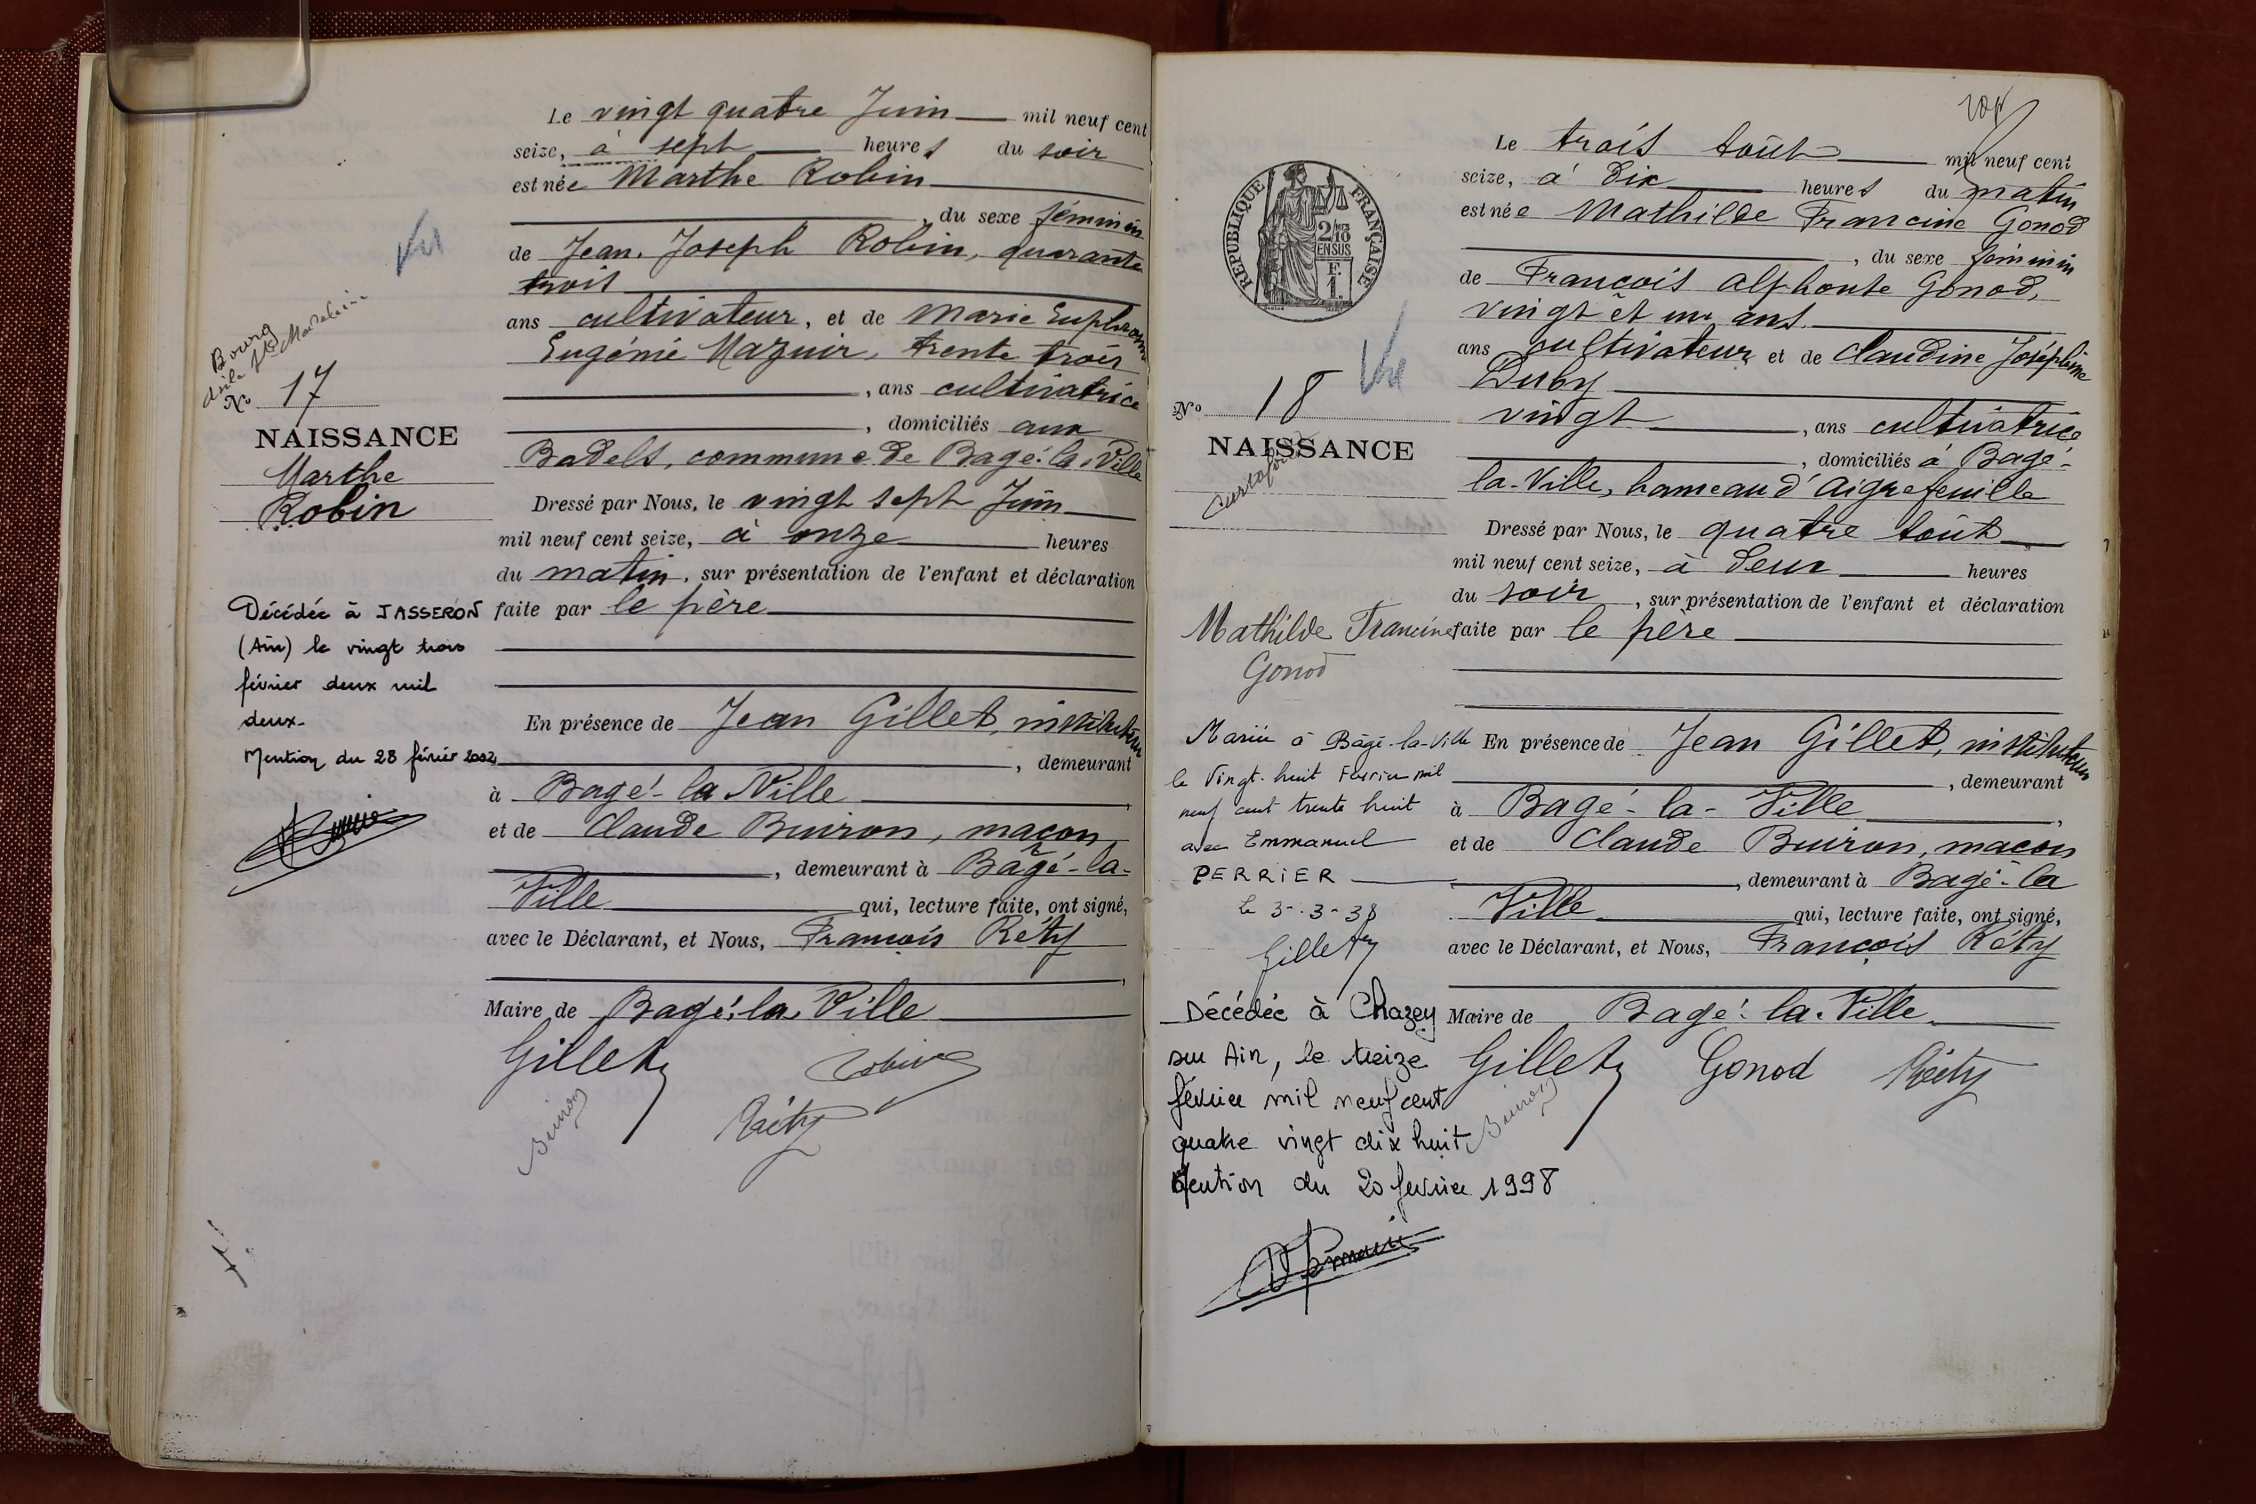 Le vingt quatre Juin mil neuf cent
seize, à sept heures du soir
est née Marthe Robin
, du sexe féminin
de Jean Joseph Robin, quarante
trois
ans cultivateur, et de Marie
Eugénie Mazuir, trente trois
, ans cultivatrice
, domiciliés aux
Badels, commune de Bagé-la-Ville
Dressé par Nous, le vingt sept Juin
mil neuf cent seize, à onze heures
du matin, sur présentation de l'enfant et déclaration
faite par le père
En présence de Jean Gillet, instituteur
, demeurant
à Bagé-la Ville,
et de Claude Buiron, maçon
, demeurant à Bagé-la-
Ville qui, lecture faite, ont signé,
avec le Déclarant, et Nous, François Réty
,
Maire de Bagé-la-Ville
Gillet Robin
Buiron Réty
Bourg
asile Ste Madeleine
No 17
NAISSANCE
Marthe
Robin
Vu
Décédée à JASSERON
(Ain) le vingt trois
février deux mil
deux-
Mention du 28 février 2002
RÉPUBLIQUE FRANÇAISE
2/10
EN SUS
F.
1.
Le trois Août mil neuf cent
seize, à dix heures du matin
est née Mathilde Francine Gonod
, du sexe féminin
de François Alphonse Gonod,
vingt et un ans
ans cultivateur et de Claudine Joséphine
Duby
vingt, ans cultivatrice
, domiciliés à Bagé-
la-Ville, hameau d'Aigrefeuille
Dressé par Nous, le quatre Août
mil neuf cent seize, à deux heures
du soir, sur présentation de l'enfant et déclaration
faite par le père
En présence de Jean Gillet, instituteur
, demeurant
à Bagé-la-Ville,
et de Claude Buiron, maçon
, demeurant à Bagé-la
Ville qui, lecture faite, ont signé,
avec le Déclarant, et Nous, François Réty
Maire de Bagé-la-Ville
Gillet Gonod Réty
Buiron
No 18
Vu
NAISSANCE
Mathilde Francine
Gonod
Mariée à Bâgé-la-Ville
le Vingt-huit Février mil
neuf cent trente huit
avec Emmanuel
PERRIER
le 3-3-38
Gillet
Décédée à Chazey
sur Ain, le treize
février mil neuf cent
quatre vingt dix huit
Mention du 20 février 1998